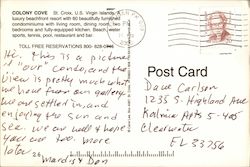 COLONY COVE St. Croix, U.S. Virgin Islands. A
luxury beachfront resort with 60 beautifully furnished
condominiums with living room, dining room, two
bedrooms and fully-equipped kitchen. Beach, water
sports, tennis, pool, restaurant and bar.
TOLL FREE RESERVATIONS 800-828-
Hi - this is a picture
of "our" condo, and the
view is pretty much what
we have from our gallery.
We are settled in, and
enjoying the sun and
sea. We are well & hope
you are too. More
later
Mardis & Don
Post Card
Dave Carlson
1235 S. Highland Ave
Kalmia Apts 5-405
Clearwater
FL 33756